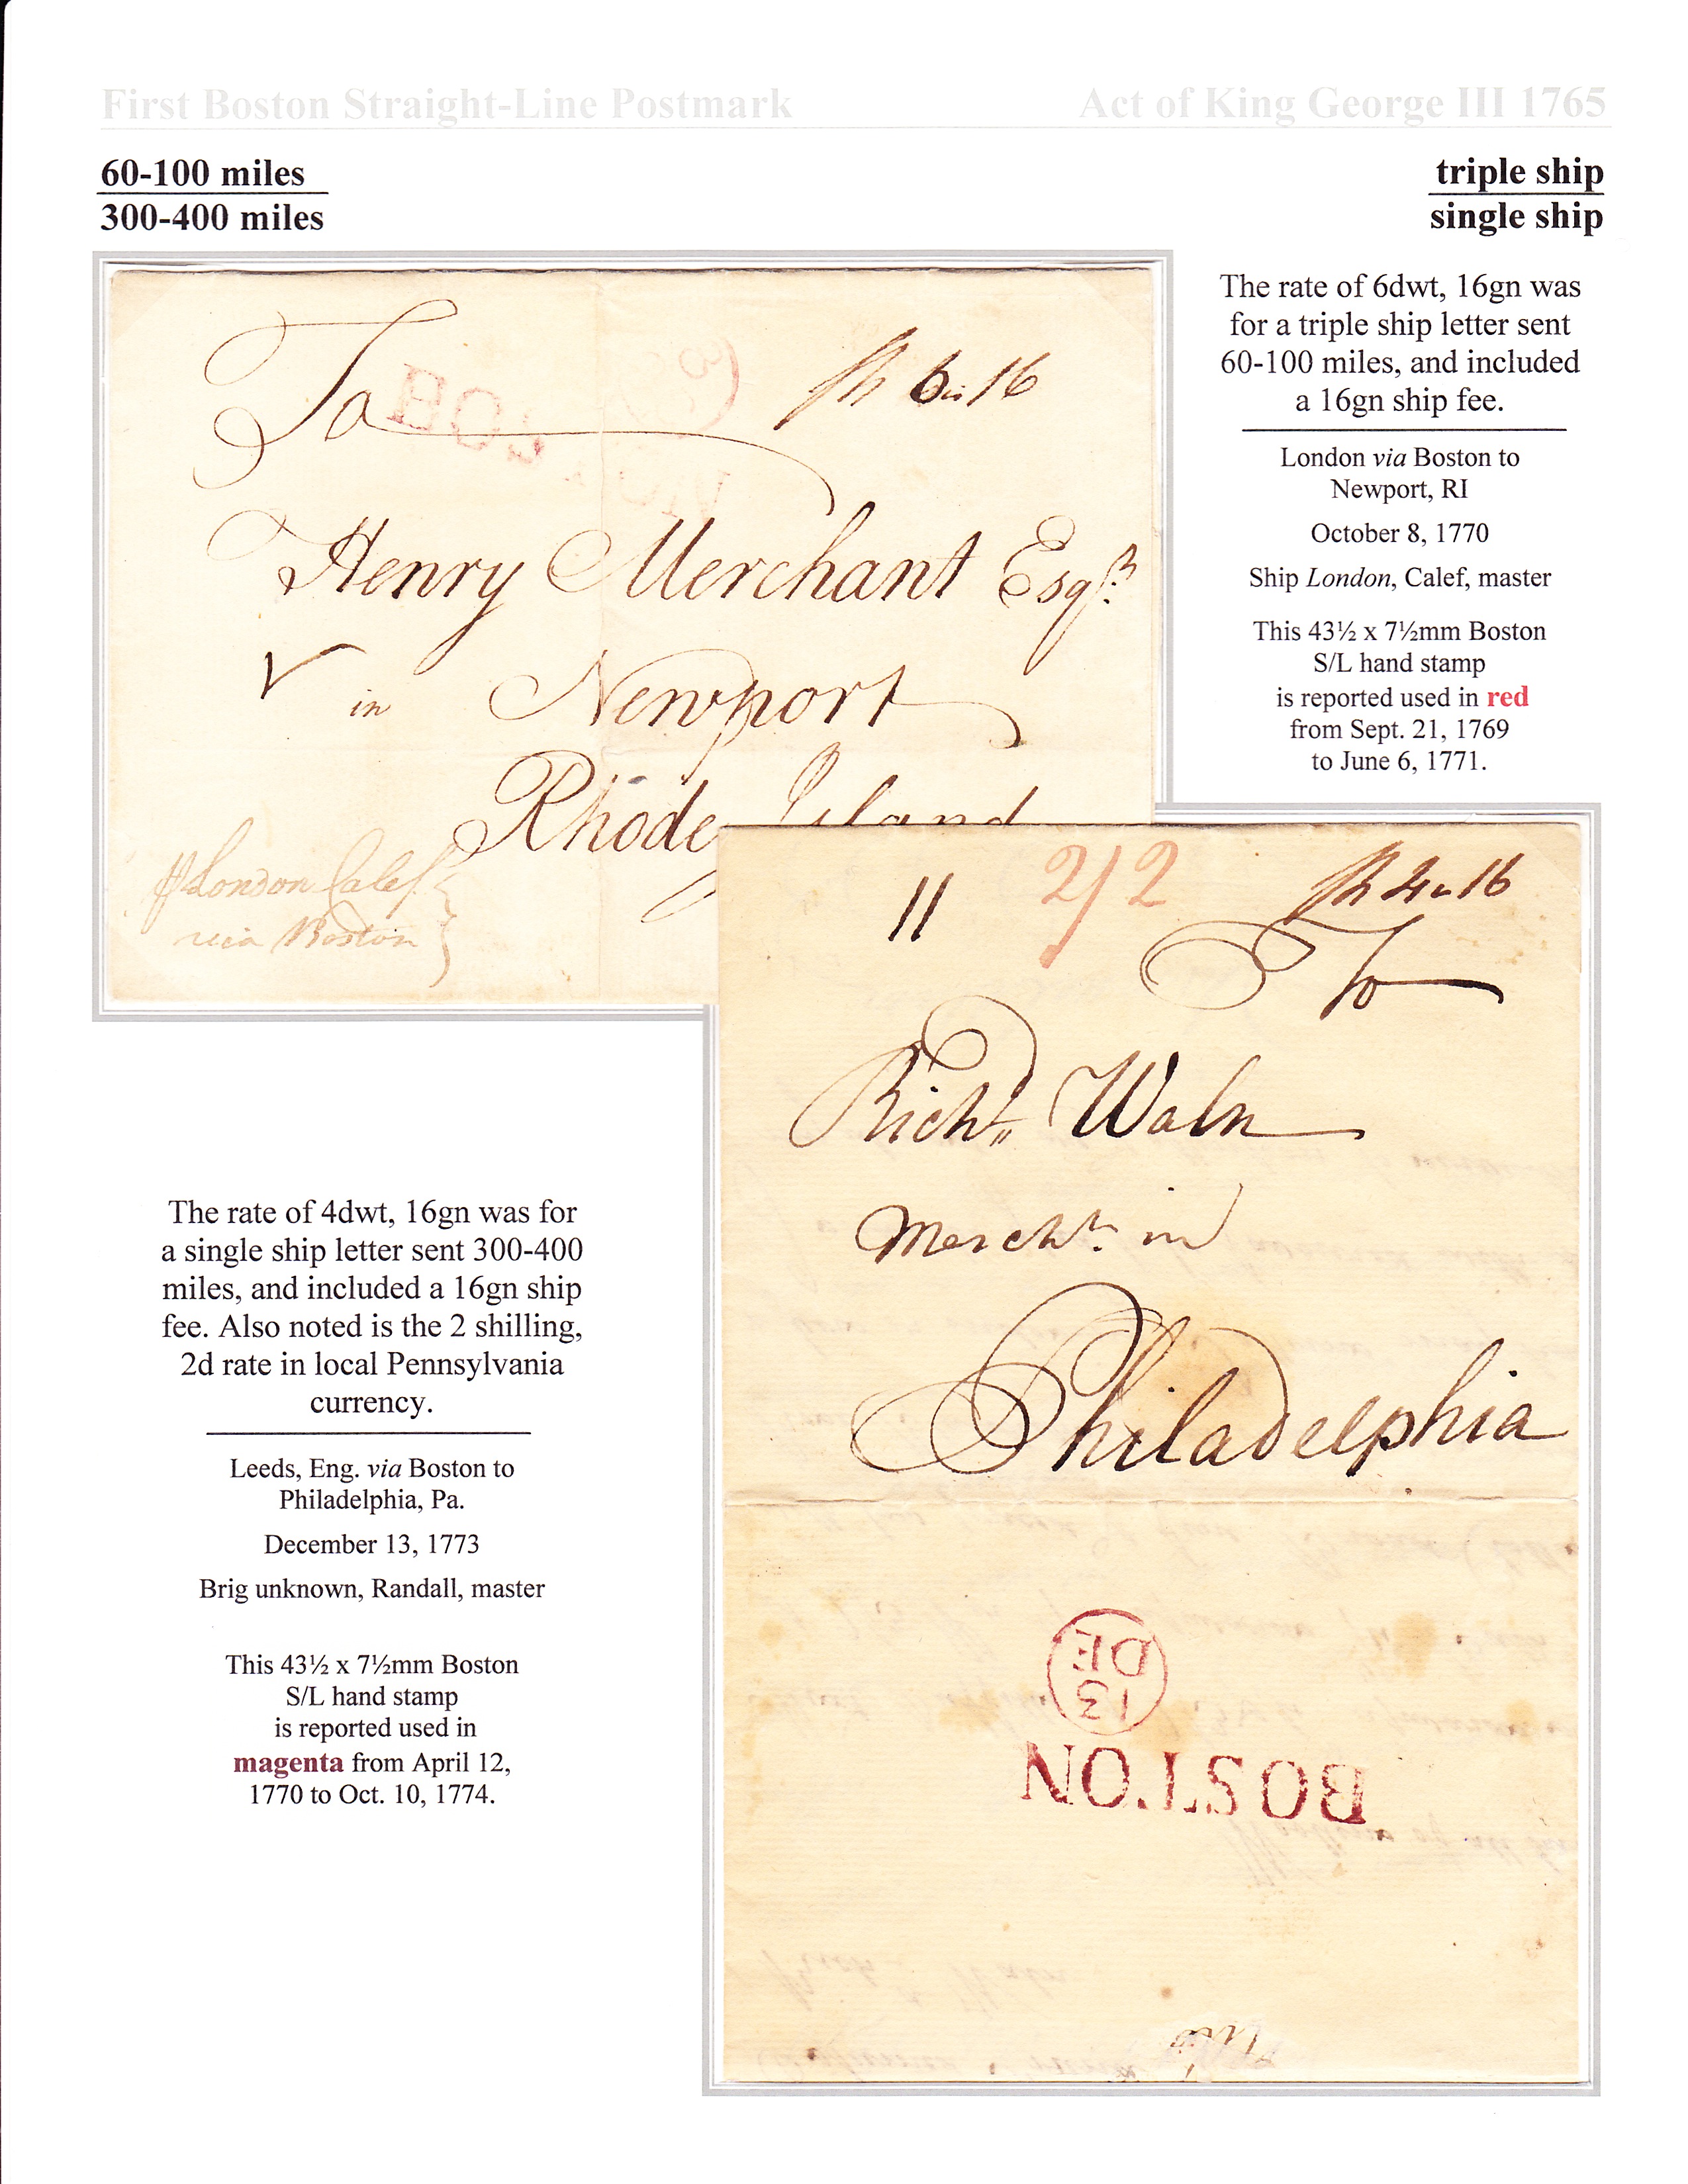 First Boston Straight-Line Postmark
Act of King George III 1765
60-100 miles
300-400 miles
triple ship
single ship
The rate of 6dwt, 16gn was
for a triple ship letter sent
60-100 miles, and included
a 16gn ship fee.
London via Boston to
Newport, RI
October 8, 1770
Ship London, Calef, master
This 43½ x 7½mm Boston
S/L hand stamp
is reported used in red
from Sept. 21, 1769
to June 6, 1771.
Sh 6..16
To
BOS
Henry Merchant Esqr.
in Newport
Rhode Island
London Calef
via Boston
11 2/2 Sh 4..16
To
Richd. Waln
Mercht. in
Philadelphia
13
DE
BOSTON
The rate of 4dwt, 16gn was for
a single ship letter sent 300-400
miles, and included a 16gn ship
fee. Also noted is the 2 shilling,
2d rate in local Pennsylvania
currency.
Leeds, Eng. via Boston to
Philadelphia, Pa.
December 13, 1773
Brig unknown, Randall, master
This 43½ x 7½mm Boston
S/L hand stamp
is reported used in
magenta from April 12,
1770 to Oct. 10, 1774.